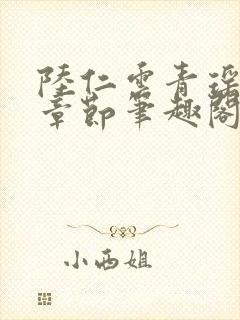 陸仁雲青瑶
章節筆趣閣
小西姐